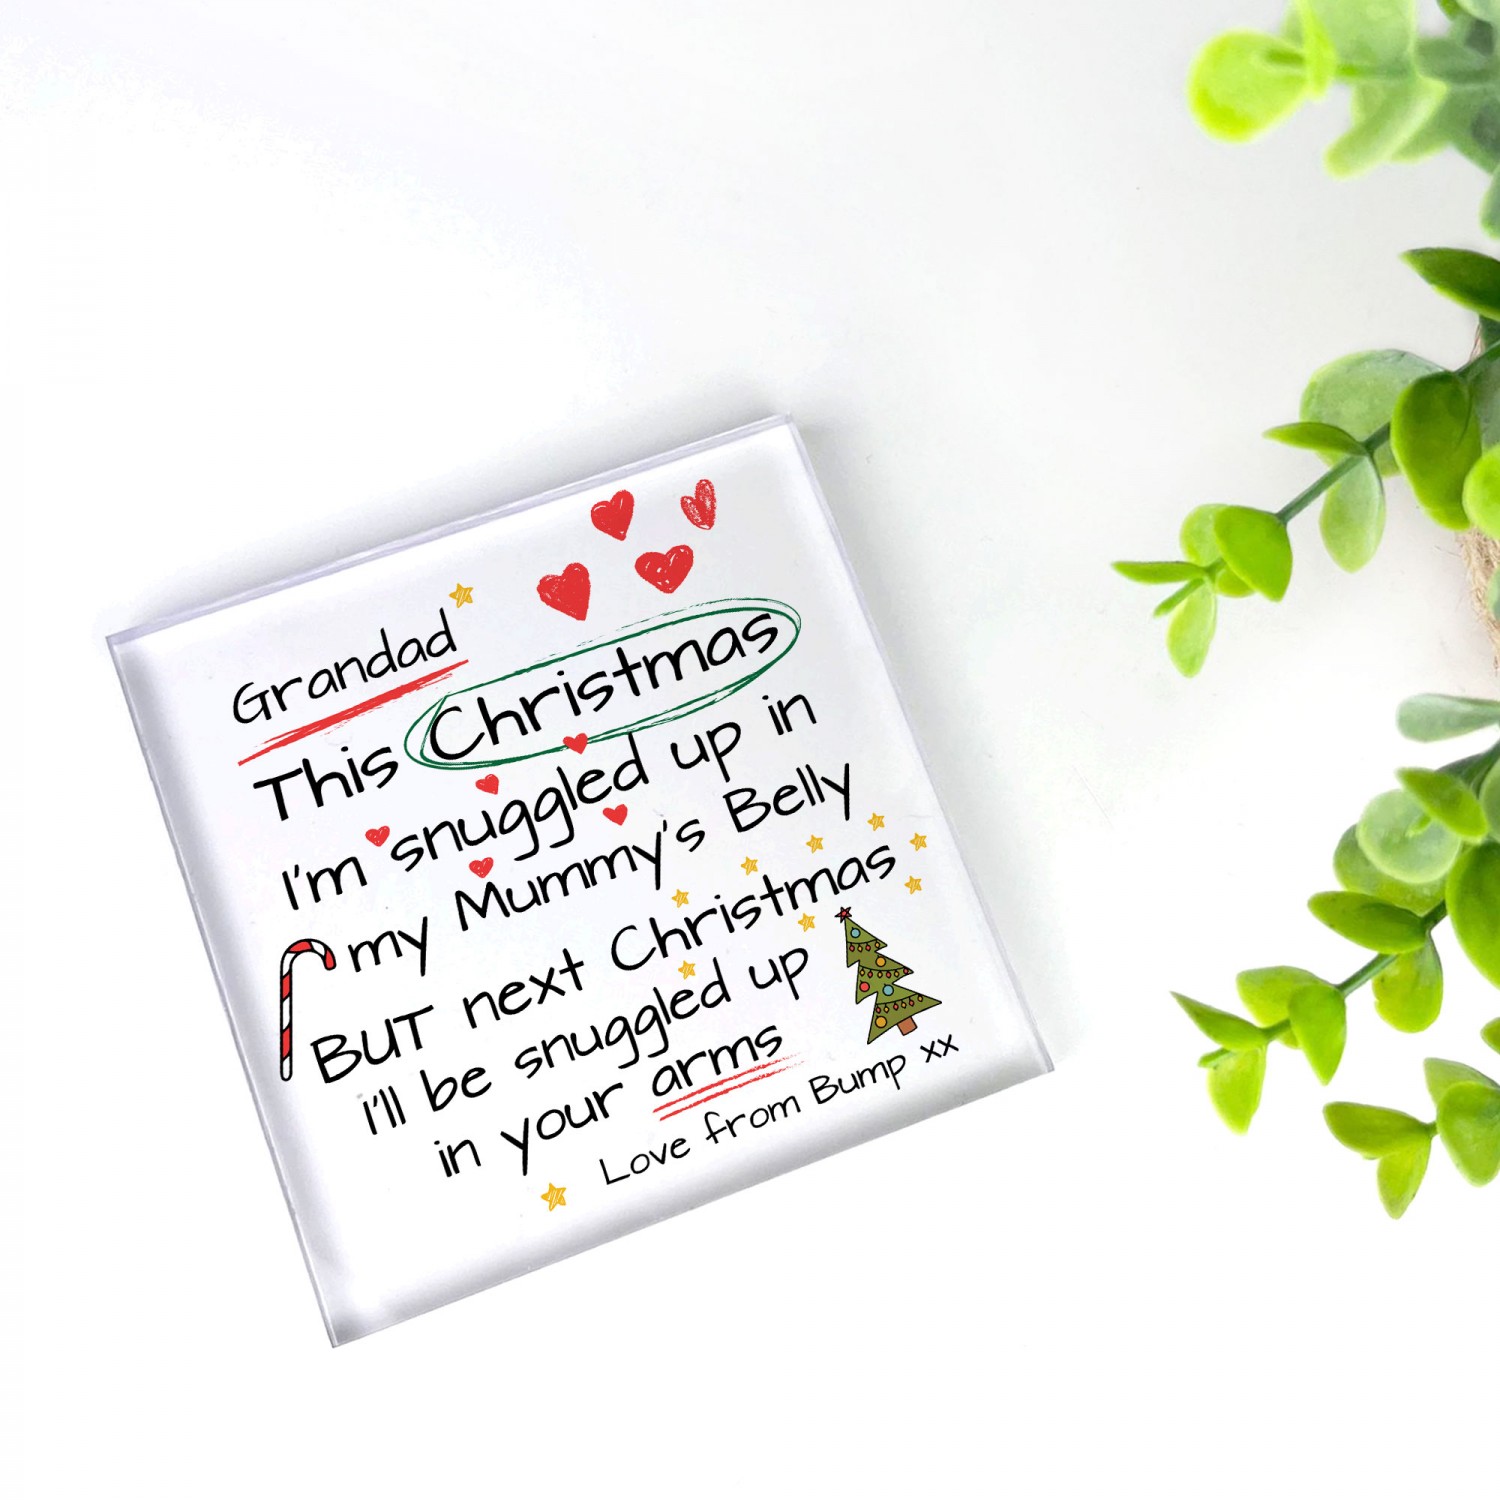 Grandad
This Christmas
I'm snuggled up in
my Mummy's Belly
BUT next Christmas
I'll be snuggled up
in your arms
Love from Bump xx